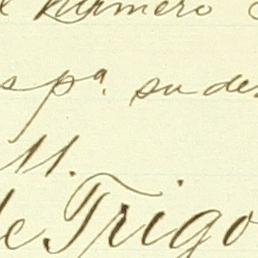 numero
s pª. su des
11.
de Trigo